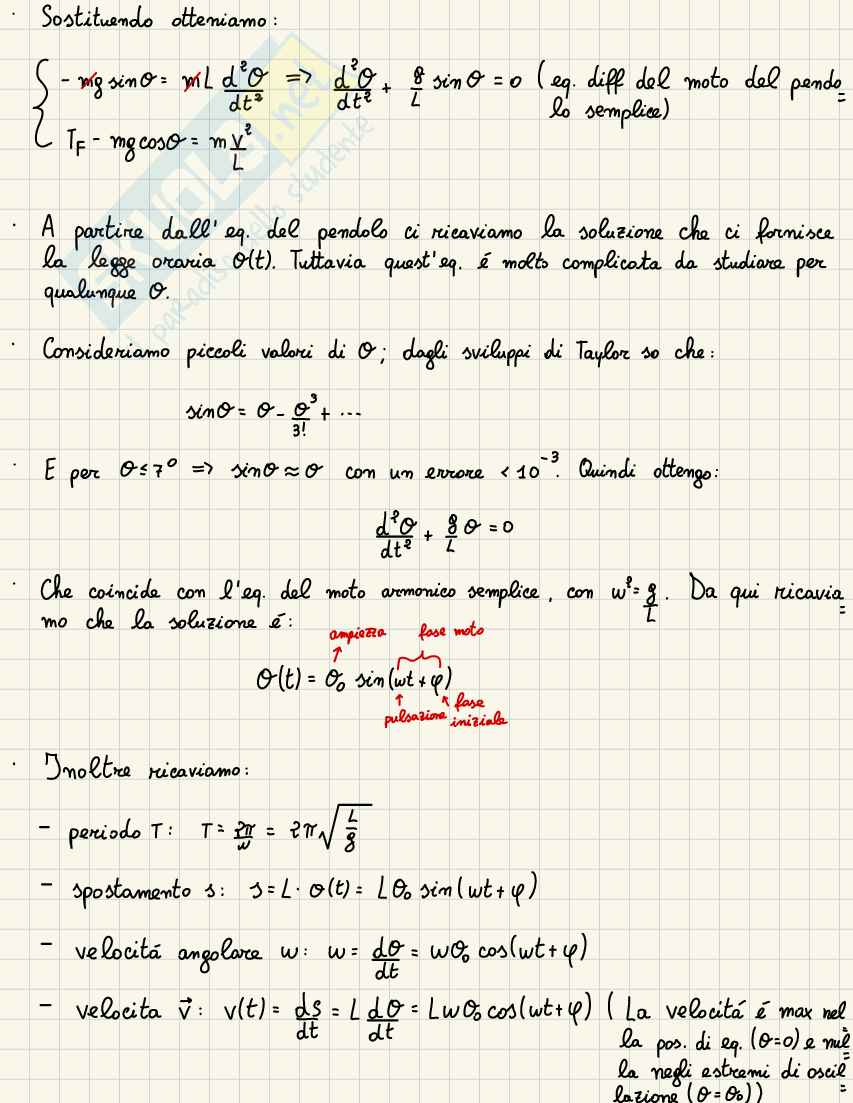 · Sostituendo otteniamo:
- mg sinθ = mL d²θ/dt² => d²θ/dt² + g/L sinθ = 0 (eq. diff del moto del pendo=
lo semplice)
T_F - mg cosθ = m v²/L
· A partire dall'eq. del pendolo ci ricaviamo la soluzione che ci fornisce
la legge oraria θ(t). Tuttavia quest'eq. é molto complicata da studiare per
qualunque θ.
· Consideriamo piccoli valori di θ; dagli sviluppi di Taylor so che:
sinθ = θ - θ³/3! + ...
· E per θ ≤ 7° => sinθ ≈ θ con un errore < 10⁻³. Quindi ottengo:
d²θ/dt² + g/L θ = 0
· Che coincide con l'eq. del moto armonico semplice, con w² = g/L. Da qui ricavia=
mo che la soluzione é:
ampiezza fase moto
θ(t) = θ₀ sin(wt + φ)
pulsazione fase
iniziale
· Inoltre ricaviamo:
- periodo T: T = 2π/w = 2π√(L/g)
- spostamento s: s = L · θ(t) = Lθ₀ sin(wt + φ)
- velocitá angolare w: w = dθ/dt = wθ₀ cos(wt + φ)
- velocita v⃗: v(t) = ds/dt = L dθ/dt = Lwθ₀ cos(wt + φ) (La velocitá é max nel=
la pos. di eq. (θ=0) e nul=
la negli estremi di oscil=
lazione (θ = θ₀))
SKUOLA.net
il paradiso dello studente